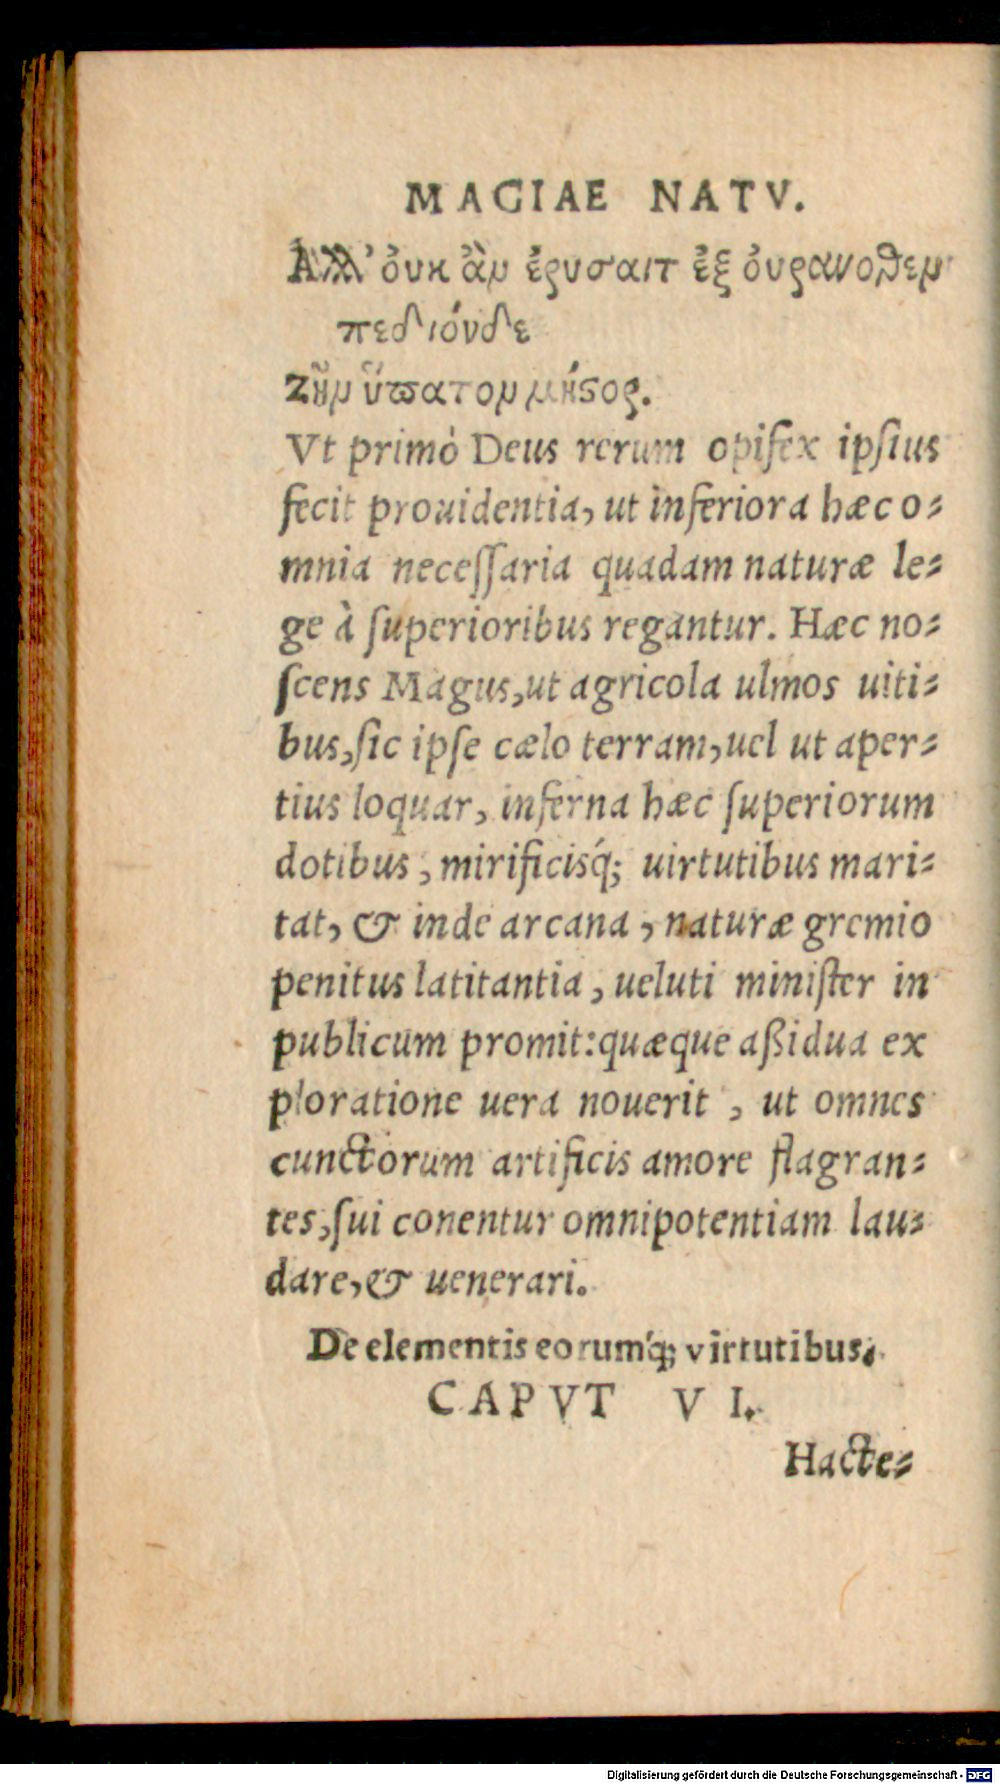 MAGIAE NATV.
Ἀλλ' ὀυκ ἂν ἐρυσαιτ ἐξ ὀυρανοθεν
πεδιόνδε
Ζῆν ὕπατον μήστορ.
Vt primò Deus rerum opifex ipſius
fecit prouidentia, ut inferiora hæc o-
mnia neceſſaria quadam naturæ le-
ge à ſuperioribus regantur. Hæc no-
ſcens Magus, ut agricola ulmos uiti-
bus, ſic ipſe cælo terram, uel ut aper-
tius loquar, inferna hæc ſuperiorum
dotibus, mirificisq́; uirtutibus mari-
tat, & inde arcana, naturæ gremio
penitus latitantia, ueluti miniſter in
publicum promit: quæque aßidua ex
ploratione uera nouerit, ut omnes
cunctorum artificis amore flagran-
tes, ſui conentur omnipotentiam lau-
dare, & uenerari.
De elementis eorumq́; virtutibus.
CAPVT VI.
Hacte-
Digitalisierung gefördert durch die Deutsche Forschungsgemeinschaft - DFG